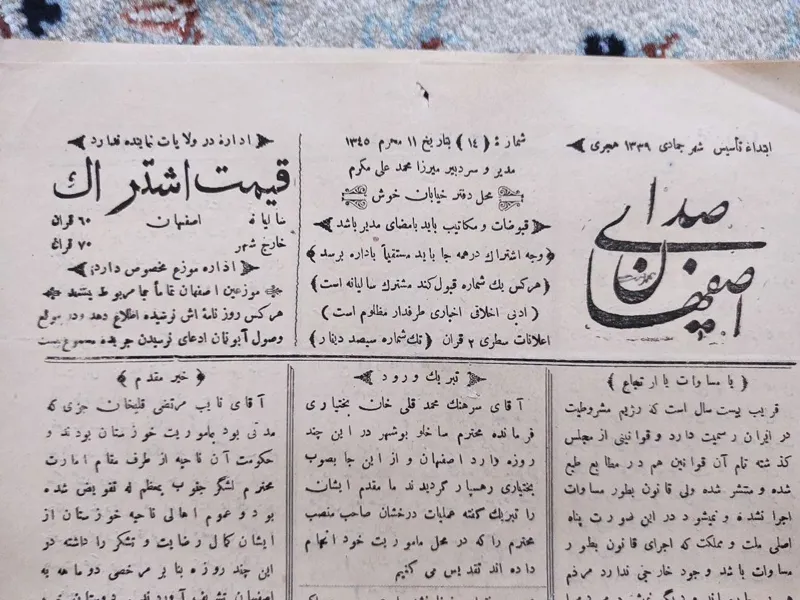 ابتداء تأسیس شهر جمادی ۱۳۳۹ هجری
صدای
اصفهان
شمارهٔ (۱۴) بتاریخ ۱۱ محرم ۱۳۴۵
مدیر و سردبیر میرزا محمد علی مکرم
محل دفتر خیابان خوش
قبوضات و مکاتیب باید بامضای مدیر باشد
وجه اشتراك درهمه جا باید مستقیماً باداره برسد
(هرکس یك شماره قبول کند مشترك سالیانه است)
( ادبی اخلاقی اخباری طرفدار مظلوم است )
اعلانات سطری ۲ قران (تك شماره سیصد دینار)
اداره در ولایات نماینده ندارد
قیمت اشتراك
سالیانه اصفهان ۶۰ قران
خارج شهر ۷۰ قران
اداره موزع مخصوص دارد
موزعین اصفهان تماماً بما مربوط نیستند
هرکس روزنامهٔ اش نرسیده اطلاع دهد ودر موقع
وصول آبونمان ادعای نرسیدن جریده مسموع نیست
(یا مساوات یا ارتجاع)
قریب بیست سال است که رژیم مشروطیت
در ایران رسمیت دارد و قوانینی از مجلس
گذشته تام آن قوانین هم در مطابع طبع
شده و منتشر شده ولی قانون بطور مساوات
اجرا نشده و نمیشود در این صورت پناه
اصلی ملت و مملکت که اجرای قانون بطور
مساوات باشد وجود خارجی ندارد مردم
تبریك ورود
آقای سرهنك محمد قلی خان بختیاری
فرمانده محترم ساخلو بوشهر در این چند
روزه وارد اصفهان و از این جا بصوب
بختیاری رهسپار گردیدند ما مقدم ایشان
را تبریك گفته عملیات درخشان صاحب منصب
محترم را که در محل ماموریت خود انجام
داده اند تقدیس می کنیم
(خیر مقدم)
آقای نایب مرتضی قلیخان جزی که
مدتی بود بماموریت خوزستان بودند و
حکومت آن ناحیه از طرف مقام امارت
محترم لشگر جنوب بمعظم له تفویض شده
بود وعموم اهالی ناحیه خوزستان از
ایشان کمال رضایت و تشکر را داشته در
این چند روزه بنا بر مرخصی دو ماهه به